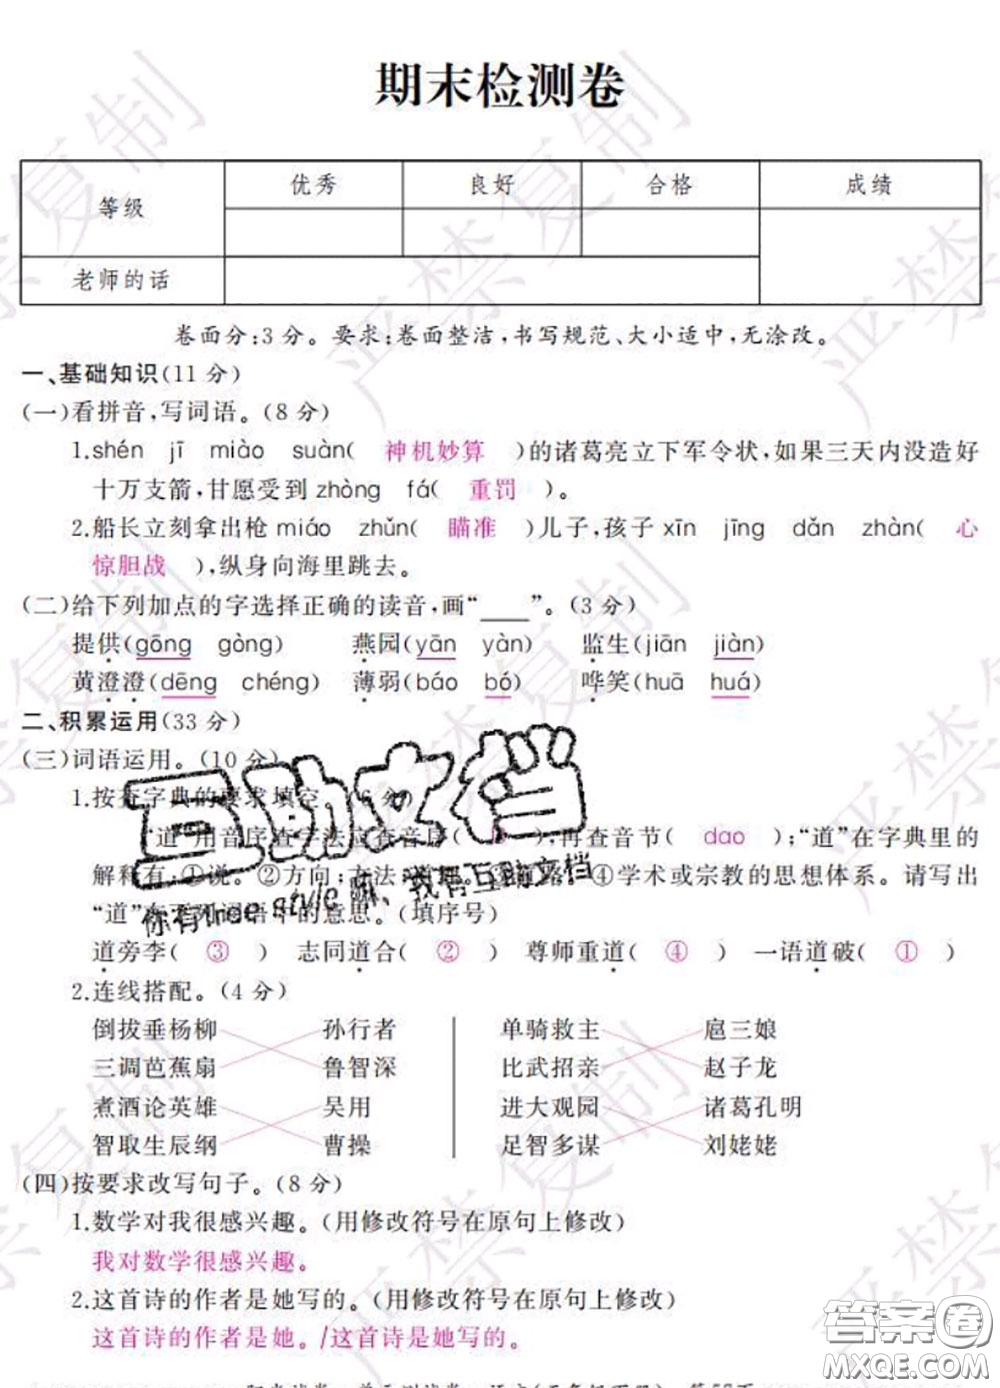 期末检测卷
等级 优秀 良好 合格 成绩
老师的话
卷面分:3分。要求:卷面整洁,书写规范、大小适中,无涂改。
一、基础知识(11分)
(一)看拼音,写词语。(8分)
1.shén jī miào suàn( 神机妙算 )的诸葛亮立下军令状,如果三天内没造好
十万支箭,甘愿受到 zhòng fá( 重罚 )。
2.船长立刻拿出枪 miáo zhǔn( 瞄准 )儿子,孩子 xīn jīng dǎn zhàn( 心
惊胆战 ),纵身向海里跳去。
(二)给下列加点的字选择正确的读音,画“___”。(3分)
提供(gōng gòng) 燕园(yān yàn) 监生(jiān jiàn)
黄澄澄(dēng chéng) 薄弱(báo bó) 哗笑(huā huá)
二、积累运用(33分)
(三)词语运用。(10分)
1.按查字典的要求填空。(6分)
“道”用音序查字法应查音序( ),再查音节( dao );“道”在字典里的
解释有:①说。②方向;方法;道理。③道路。④学术或宗教的思想体系。请写出
“道”在下列词语中的意思。(填序号)
道旁李( ③ ) 志同道合( ② ) 尊师重道( ④ ) 一语道破( ① )
2.连线搭配。(4分)
倒拔垂杨柳 孙行者 单骑救主 扈三娘
三调芭蕉扇 鲁智深 比武招亲 赵子龙
煮酒论英雄 吴用 进大观园 诸葛孔明
智取生辰纲 曹操 足智多谋 刘姥姥
(四)按要求改写句子。(8分)
1.数学对我很感兴趣。(用修改符号在原句上修改)
我对数学很感兴趣。
2.这首诗的作者是她写的。(用修改符号在原句上修改)
这首诗的作者是她。/这首诗是她写的。
互助文档
严禁复制
答案圈
MXQE.COM